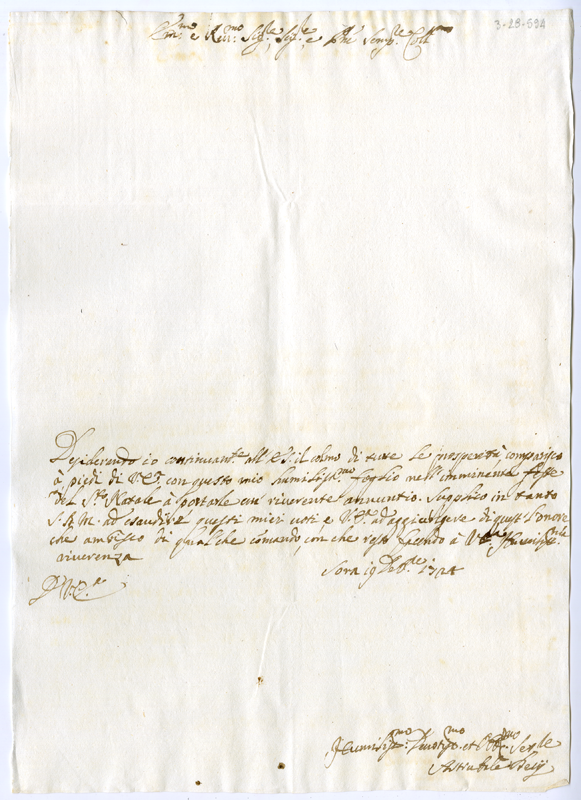 3-28-594
Em.mo e Rev.mo Sig.re Sig.re e Pne Semp.e Coll.mo
Desiderando io continuam.te all'E.V. il colmo di tutte le prosperità comparisco
à piedi di V.E. con questo mio humiliss.mo foglio nell'imminenti feste
del S.to Natale à portarle un riverente annuntio. Supplico in tanto
S.D.M. ad esaudire questi miei voti e V.E. ad aggiungere di quest'honore
che ambisco di qualche comando, con che resto facendo à V.E. humiliss.
riverenza
Sora 19 Xbre 1724
D. V. E.
Humiliss.mo Devotiss.mo et Obl.mo Ser.re